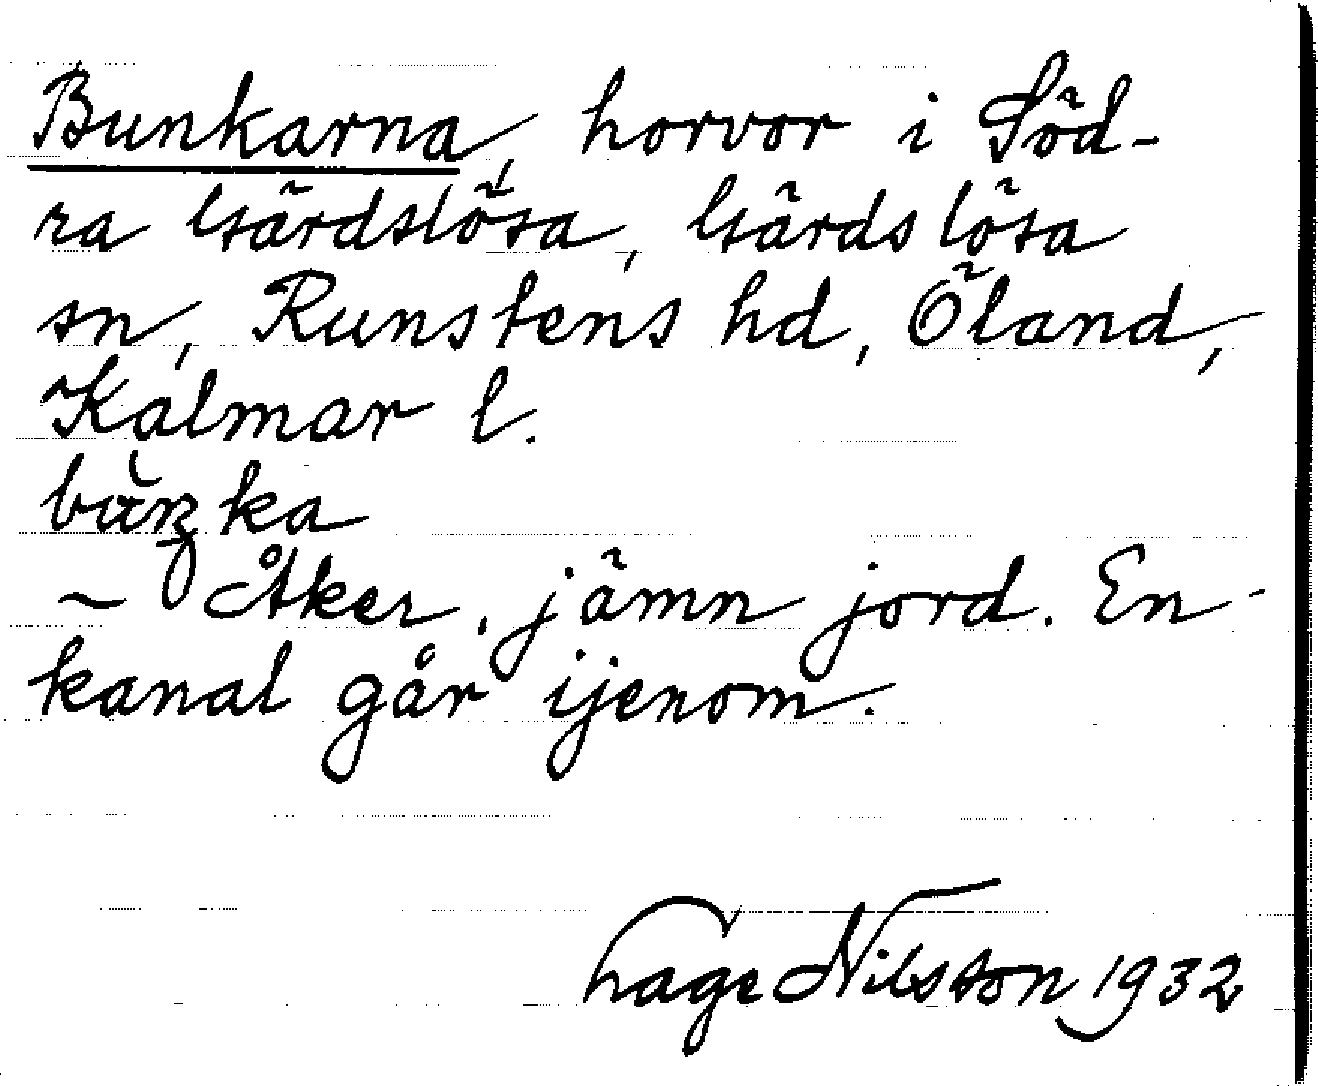 Bunkarna, horvor i Söd-
ra Gärdslösa, Gärdslösa
sn, Runstens hd, Öland,
Kalmar l.
ka
~ Åker, jämn jord. En
kanal går ijenom.
Hage Nilsson 1932